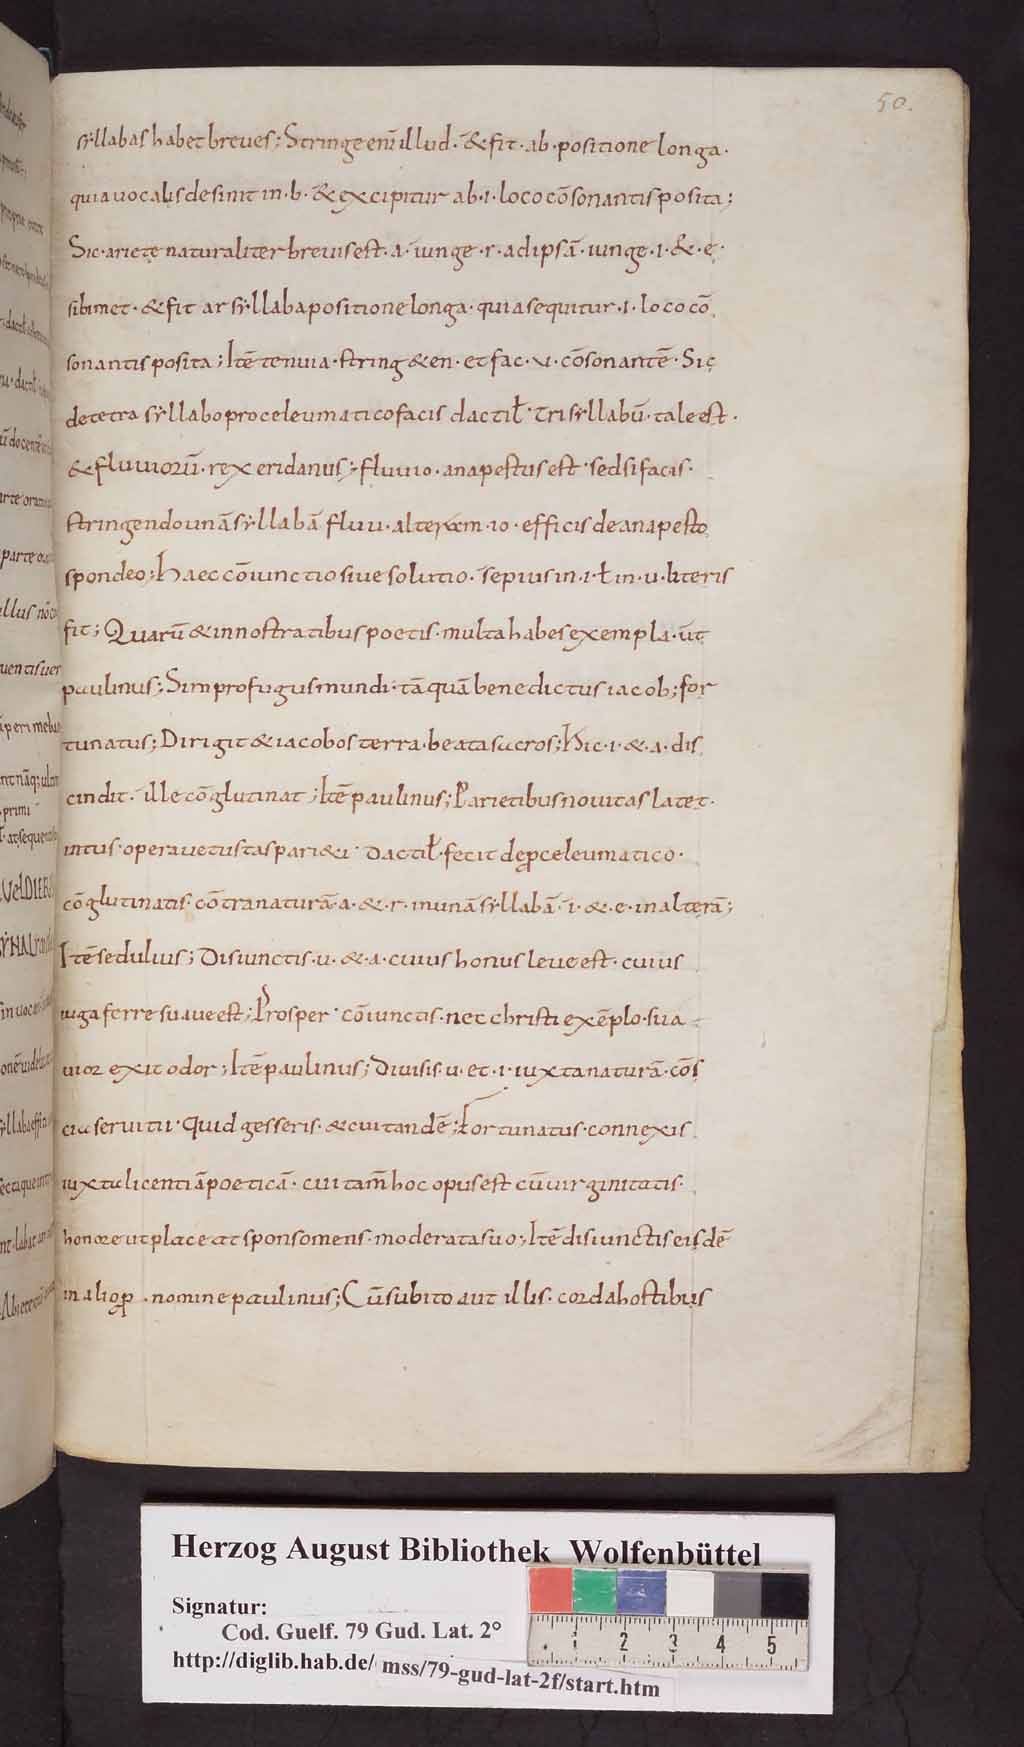 50.
syllabas habet breves; Stringe enī illud. &fit. ab. positione longa.
quia vocalis desinit in. b. & excipitur ab. i. loco cōsonantis posita;
Sic. ariete naturaliter brevis est. a. iunge. r. ad ipsā. iunge. i. &. e.
sibimet. &fit ar syllaba positione longa. quia sequitur. i. loco cō
sonantis posita; Itē tenuia. string& en. et fac. u. cōsonantē. Sic
de tetra syllabo proceleumatico facis dactił. trisyllabū. tale est.
& fluuiorū. rex eridanus; fluuio. anapestus est. sed si facis.
stringendo unā syllabā fluu. alteram. io. efficis de anapesto
spondeo; Haec cōiunctio sive solutio. sepius in. i. ł in. u. literis
fit; Quarū & in nostratibus poetis. multa habes exempla. ut
paulinus; Sim profugus mundi. tāquā benedictus iacob; for
tunatus; Dirigit & iacobos terra. beata sacros; Hic. i. &. a. dis
cindit. ille cōglutinat; Itē paulinus; Parietibus novitas latet.
intus. opera vetustas pari&i. dactił. fecit de ꝓceleumatico.
cōglutinatis. cōtra naturā. a. &. r. in unā syllabā. i. &. e. in alterā;
Itē sedulius; Disiunctis. u. &. a. cuius honus leve est. cuius
iuga ferre suave est; Prosper. cōiunctis. nec christi exēplo. sua
uior exit odor; Itē paulinus; Divisis. u. et. i. iuxta naturā. cōs
cia servitii. Quid gesseris. & cui tandē; Fortunatus. connexis
iuxta licentiā poeticā. cui tam̄ hoc opus est cū virginitatis.
honore ut placeat sponso mens. moderata suo; Itē disiunctis eisdē
in alio ꝓ. nomine paulinus; Cū subito aut illis. corda hostibus
Herzog August Bibliothek Wolfenbüttel
Signatur:
Cod. Guelf. 79 Gud. Lat. 2°
http://diglib.hab.de/ mss/79-gud-lat-2f/start.htm
1 2 3 4 5